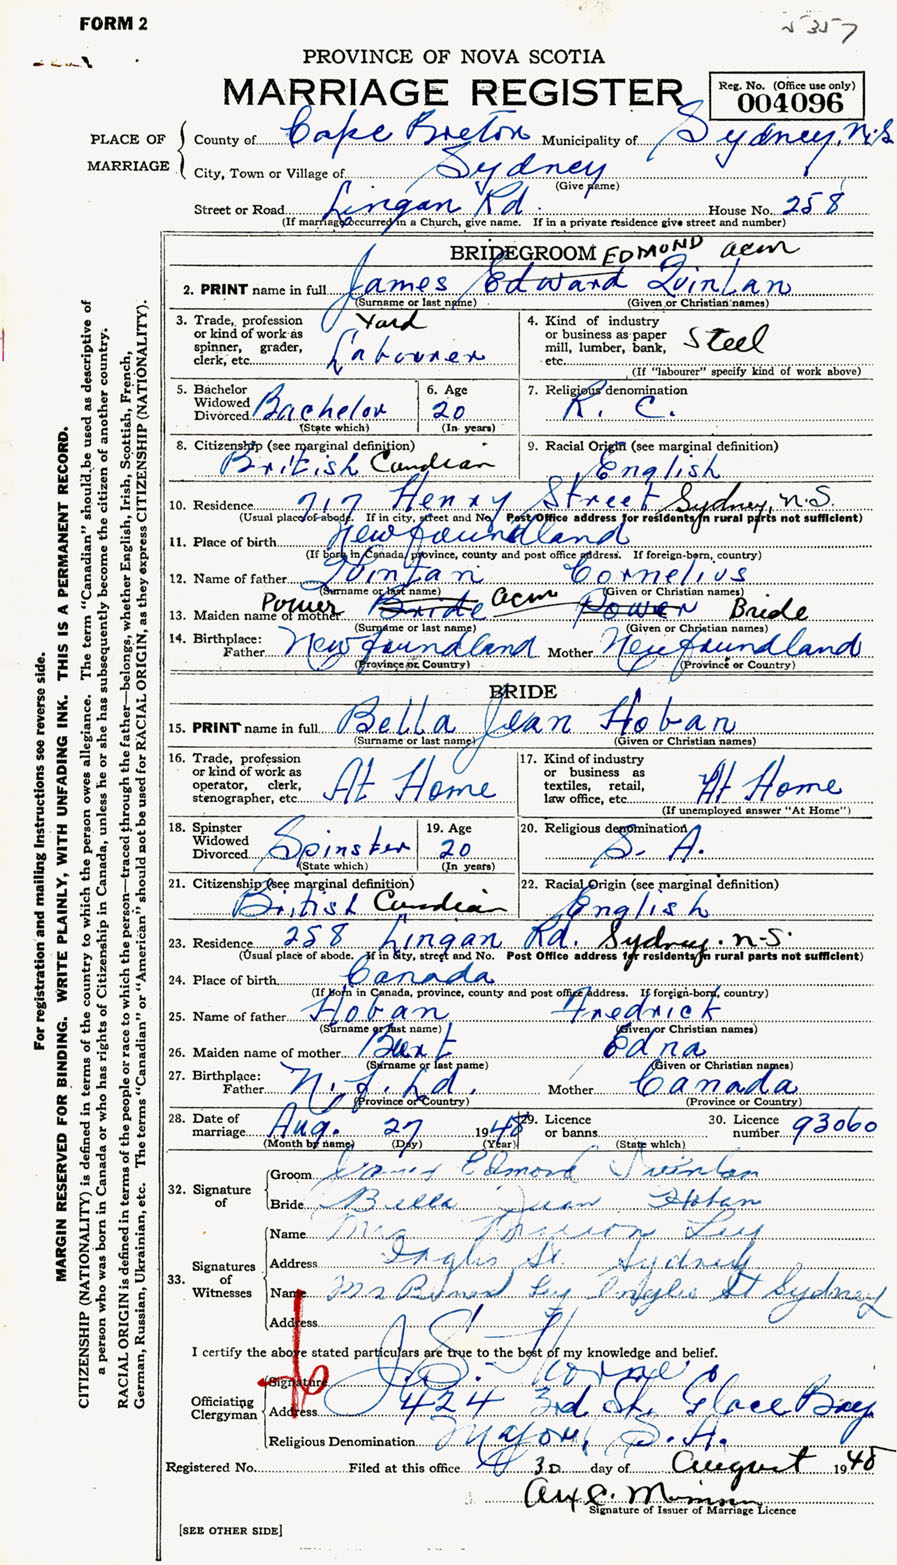 FORM 2
5357
PROVINCE OF NOVA SCOTIA
MARRIAGE REGISTER
Reg. No. (Office use only)
004096
PLACE OF MARRIAGE
County of Cape Breton Municipality of Sydney, N.S
City, Town or Village of Sydney
(Give name)
Street or Road Lingan Rd. House No. 258
(If marriage occurred in a Church, give name. If in a private residence give street and number)
BRIDEGROOM EDMOND acm
2. PRINT name in full James Edward Quinlan
(Surname or last name) (Given or Christian names)
3. Trade, profession or kind of work as spinner, grader, clerk, etc. Yard Labourer
4. Kind of industry or business as paper mill, lumber, bank, etc. Steel
(If "labourer" specify kind of work above)
5. Bachelor Widowed Divorced Bachelor
(State which)
6. Age 20
(In years)
7. Religious denomination R. C.
8. Citizenship (see marginal definition) British Canadian
9. Racial Origin (see marginal definition) English
10. Residence 717 Henry Street Sydney, N.S.
(Usual place of abode. If in city, street and No. Post Office address for residents in rural parts not sufficient)
11. Place of birth Newfoundland
(If born in Canada, province, county and post office address. If foreign-born, country)
12. Name of father Quinlan Cornelius
(Surname or last name) (Given or Christian names)
13. Maiden name of mother Power Bride acm Power Bride
(Surname or last name) (Given or Christian names)
14. Birthplace: Father Newfoundland Mother Newfoundland
(Province or Country) (Province or Country)
BRIDE
15. PRINT name in full Bella Jean Hoban
(Surname or last name) (Given or Christian names)
16. Trade, profession or kind of work as operator, clerk, stenographer, etc. At Home
17. Kind of industry or business as textiles, retail, law office, etc. At Home
(If unemployed answer "At Home")
18. Spinster Widowed Divorced Spinster
(State which)
19. Age 20
(In years)
20. Religious denomination S. A.
21. Citizenship (see marginal definition) British Canadian
22. Racial Origin (see marginal definition) English
23. Residence 258 Lingan Rd. Sydney. N-S.
(Usual place of abode. If in city, street and No. Post Office address for residents in rural parts not sufficient)
24. Place of birth Canada
(If born in Canada, province, county and post office address. If foreign-born, country)
25. Name of father Hoban Fredrick
(Surname or last name) (Given or Christian names)
26. Maiden name of mother Burt Edna
(Surname or last name) (Given or Christian names)
27. Birthplace: Father N.F.Ld. Mother Canada
(Province or Country) (Province or Country)
28. Date of marriage Aug. 27 1948
(Month by name) (Day) (Year)
29. Licence or banns
(State which)
30. Licence number 93060
32. Signature of
Groom James Edmond Quinlan
Bride Bella Jean Hoban
33. Signatures of Witnesses
Name Mrs
Address Inglis St. Sydney
Name Mr Inglis St Sydney
Address
I certify the above stated particulars are true to the best of my knowledge and belief.
Officiating Clergyman
Signature J. S.
Address 424 3rd. St. Glace Bay
Religious Denomination Major, S.A.
Registered No. Filed at this office 30 day of August 1948
Signature of Issuer of Marriage Licence
[SEE OTHER SIDE]
For registration and mailing instructions see reverse side.
MARGIN RESERVED FOR BINDING. WRITE PLAINLY, WITH UNFADING INK. THIS IS A PERMANENT RECORD.
CITIZENSHIP (NATIONALITY) is defined in terms of the country to which the person owes allegiance. The term "Canadian" should be used as descriptive of
a person who was born in Canada or who has rights of Citizenship in Canada, unless he or she has subsequently become the citizen of another country.
RACIAL ORIGIN is defined in terms of the people or race to which the person—traced through the father—belongs, whether English, Irish, Scottish, French,
German, Russian, Ukrainian, etc. The terms "Canadian" or "American" should not be used for RACIAL ORIGIN, as they express CITIZENSHIP (NATIONALITY).